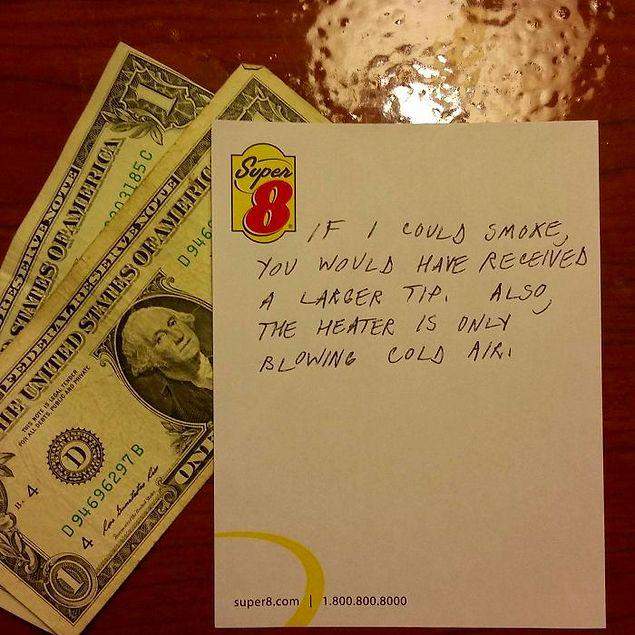 1
RESERVE NOTE
STATES OF AMERICA
03185C
FEDERAL RESERVE NOTE
THE UNITED STATES OF AMERIC
D946
THIS NOTE IS LEGAL TENDER
FOR ALL DEBTS, PUBLIC AND PRIVATE
D
4
D 94696297 B
4
ONE
1
Super
8
IF I COULD SMOKE,
YOU WOULD HAVE RECEIVED
A LARGER TIP. ALSO,
THE HEATER IS ONLY
BLOWING COLD AIR.
super8.com | 1.800.800.8000